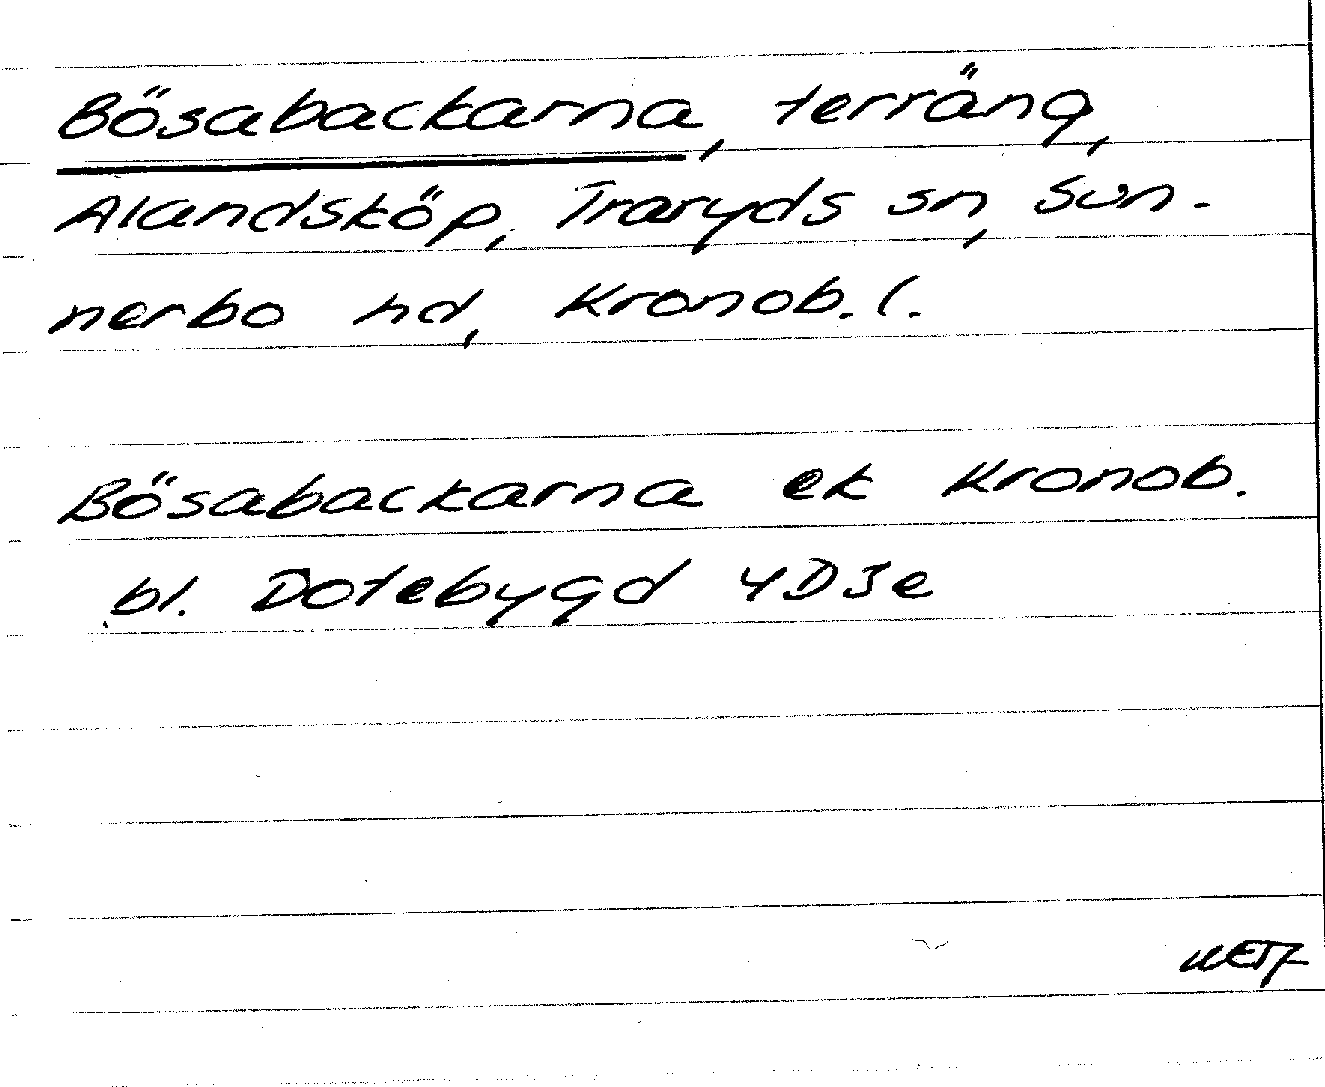 Bösabackarna, terräng,
Alandsköp, Traryds sn, Sun-
nerbo hd, Kronob. l.
Bösabackarna ek Kronob.
bl. Dotebygd 4D3e